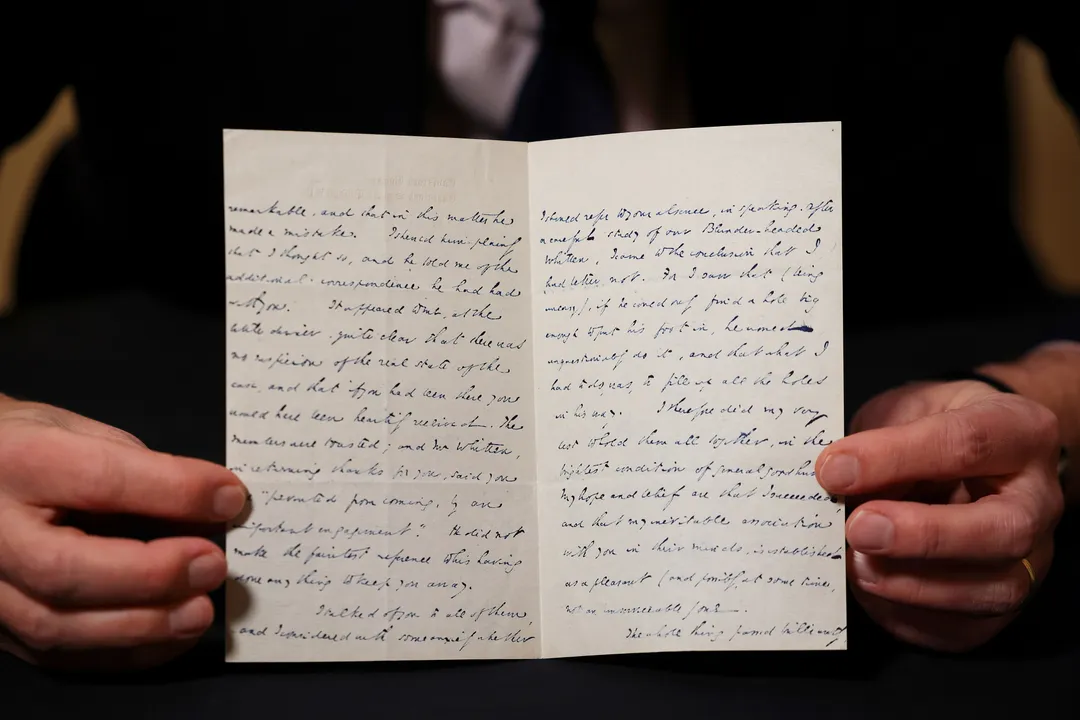 remarkable, and that in this matter he
made a mistake. I should have plainly
that I thought so, and he told me of the
additional correspondence he had had
with you. It appeared to me, at the
dinner, quite clear that there was
no suspicion of the real state of the
case, and that if you had been there you
would have been heartily received. The
members were toasted; and Mr Whitten,
in returning thanks for you, said you
"prevented from coming, by an
important engagement". He did not
make the faintest reference to his having
done any thing to keep you away.
I talked of you to all of them,
and I considered with some anxiety whether
I should refer to your absence, in speaking. After
a careful study of our Blunder-headed
Whitten, I came to the conclusion that I
had better not. For I saw that (being
uneasy), if he could only find a hole big
enough to put his foot in, he would
unquestionably do it, and that what I
had to do was, to fill up all the holes
in his way. I therefore did my very
best to hold them all together, in the
brightest condition of general good hum
My hope and belief are that I succeeded
and that my inevitable association
with you in their minds, is established
as a pleasant (and possibly at some time,
not an unserviceable) one.
The whole thing passed brilliantly